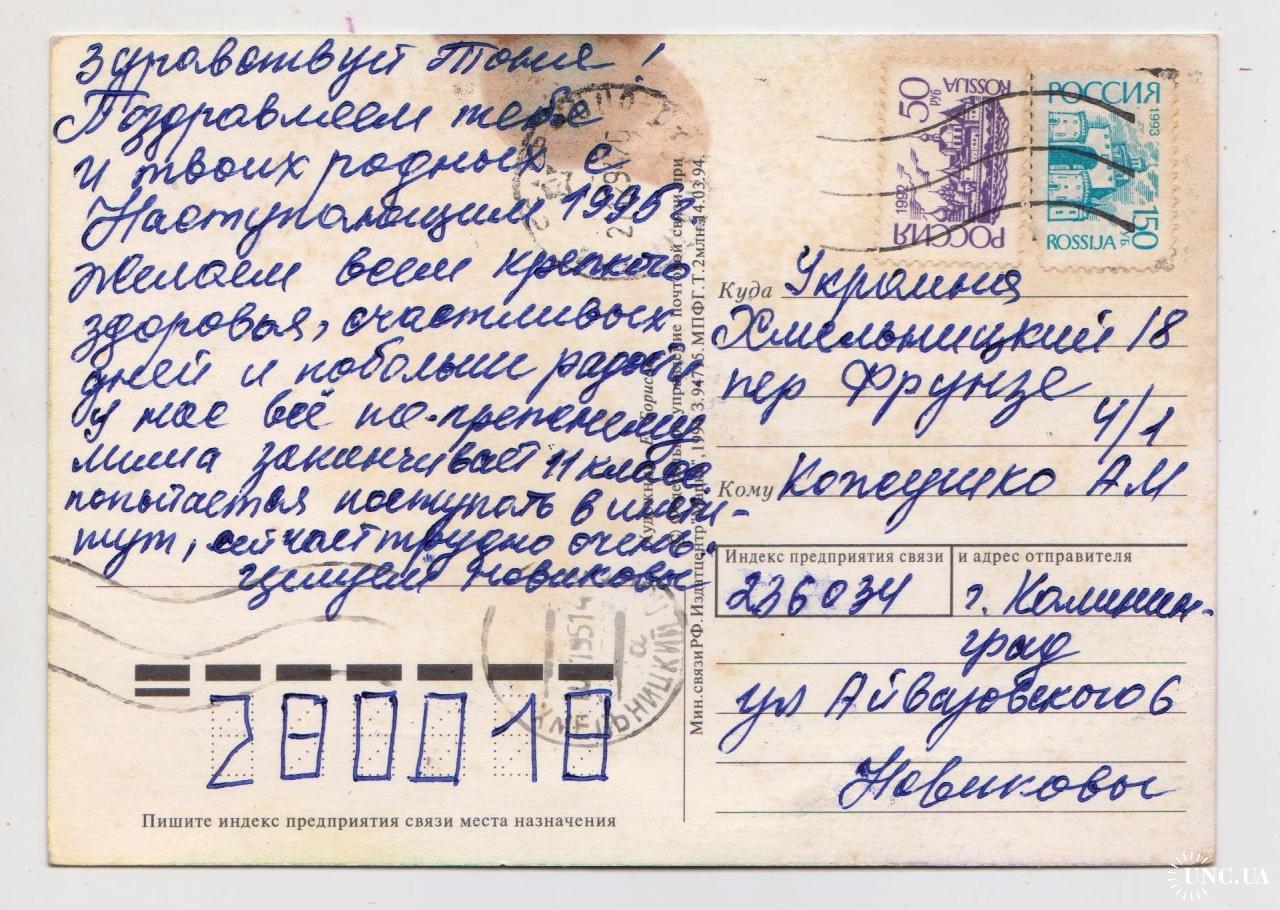 Здравствуй Тоня!
Поздравляем тебя
и твоих родных с
Наступающим 1995 г
Желаем всем крепкого
здоровья, счастливых
дней и побольше радости
У нас всё по-прежнему
Миша заканчивает 11 класс
попытается поступать в инсти-
тут, сейчас трудно очень.
Целуем Новиковы
РОССИЯ
1992
50
РУБ
ROSSIJA
РОССИЯ
1993
150
РУБ
ROSSIJA
Куда Украина
Хмельницкий 18
пер Фрунзе
4/1
Кому Кожушко АМ
Индекс предприятия связи и адрес отправителя
236034 г. Калинин-
град
ул Айвазовского 6
Новиковы
управление почтовой связи при
Мин.связи РФ. Издатцентр "Марка", 1994 З.94715. МПФГ. Т. 2 млн. 14.03.94.
ХМЕЛЬНИЦКИЙ
а
280018
Пишите индекс предприятия связи места назначения
UNC.UA